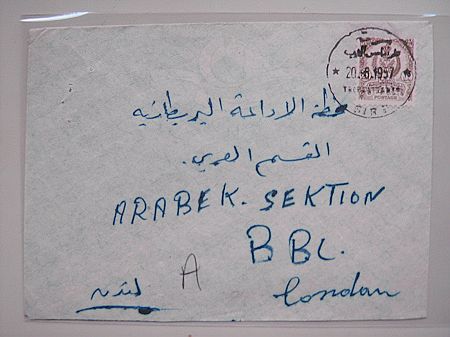 20.8.1957
POSTAGE
محطة الاذاعة البريطانيه
القسم العربي.
ARABEK. SEKTION
BBC.
A
London
لندن